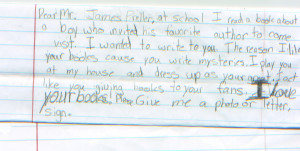 Dear Mr. James Preller, at school I read a book about
a boy who invited his favorite author to come
visit. I wanted to write to you. The reason I like
your books cause you write mysteries. I play you
at my house and dress up as your
like you giving books to your fans. I love
your books. Please Give me a photo or letter,
sign.